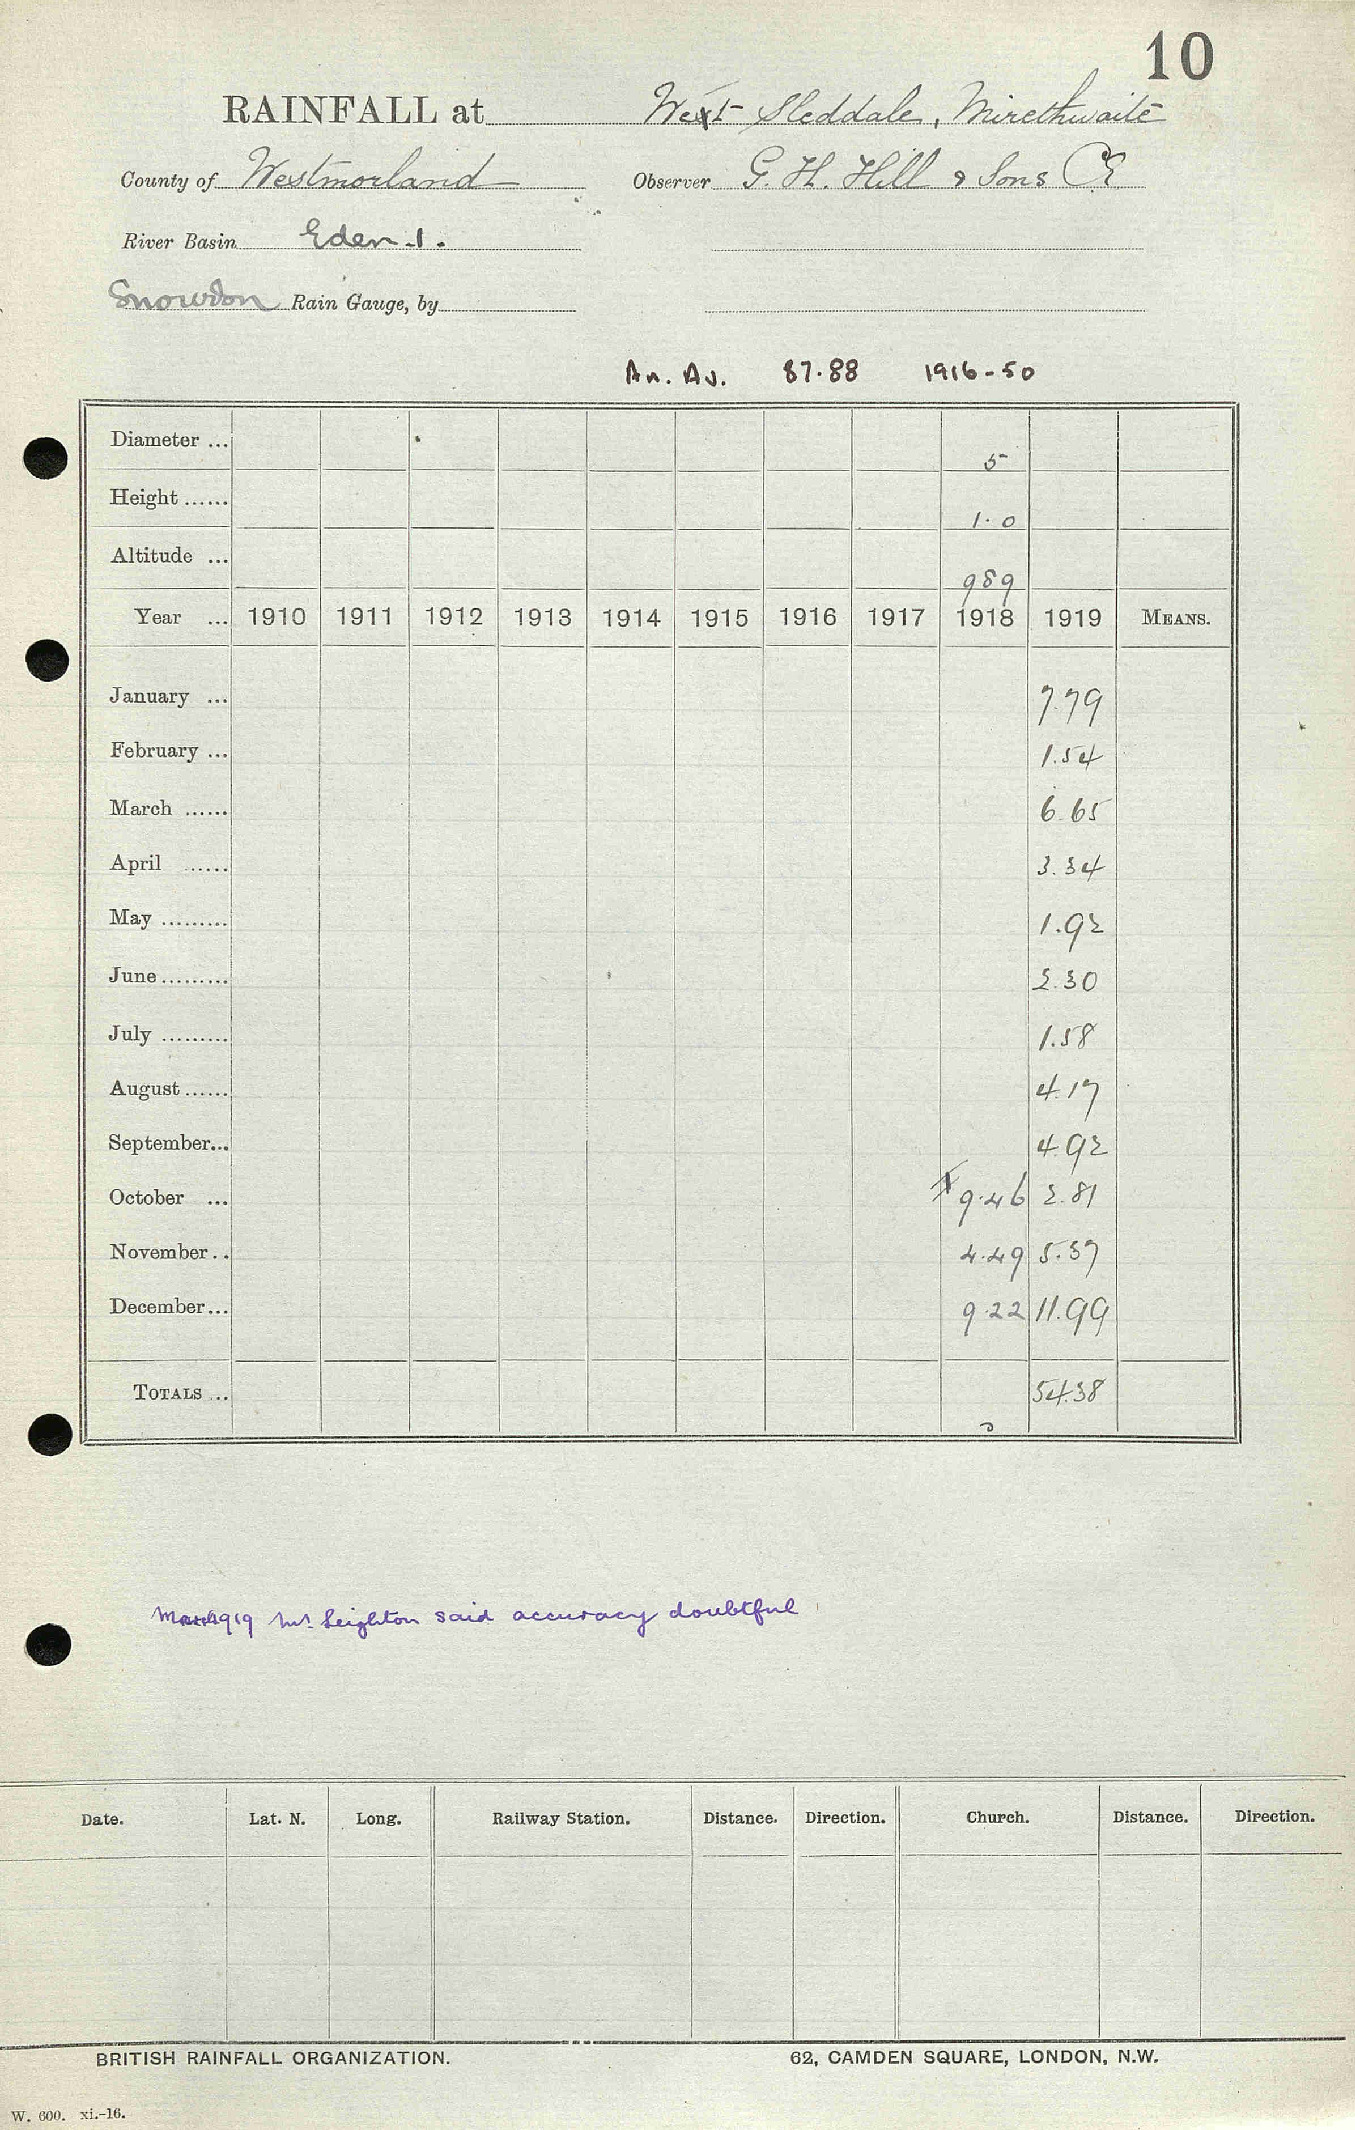 10
RAINFALL at West Sleddale, Mirethwaite
County of Westmorland Observer G. H. Hill & Sons CE
River Basin Eden 1.
Snowdon Rain Gauge, by
An. Av. 87.88 1916-50
Diameter ... 5
Height ...... 1.0
Altitude ... 989
Year ... 1910 1911 1912 1913 1914 1915 1916 1917 1918 1919 MEANS.
January ... 7.79
February ... 1.54
March ...... 6.65
April ...... 3.34
May ......... 1.92
June ......... 2.30
July ......... 1.58
August ...... 4.17
September... 4.92
October ... 9.46 2.81
November .. 4.49 5.37
December... 9.22 11.99
TOTALS ... 54.38
March 1919 Mr. Leighton said accuracy doubtful
Date. Lat. N. Long. Railway Station. Distance. Direction. Church. Distance. Direction.
BRITISH RAINFALL ORGANIZATION. 62, CAMDEN SQUARE, LONDON, N.W.
W. 600. xi.-16.